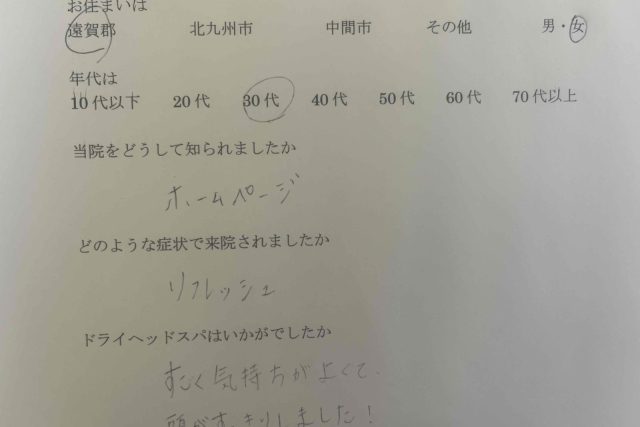 お住まいは
遠賀郡 北九州市 中間市 その他 男・女
年代は
10代以下 20代 30代 40代 50代 60代 70代以上
当院をどうして知られましたか
ホームページ
どのような症状で来院されましたか
リフレッシュ
ドライヘッドスパはいかがでしたか
すごく気持ちが良くて、
頭がすっきりしました！